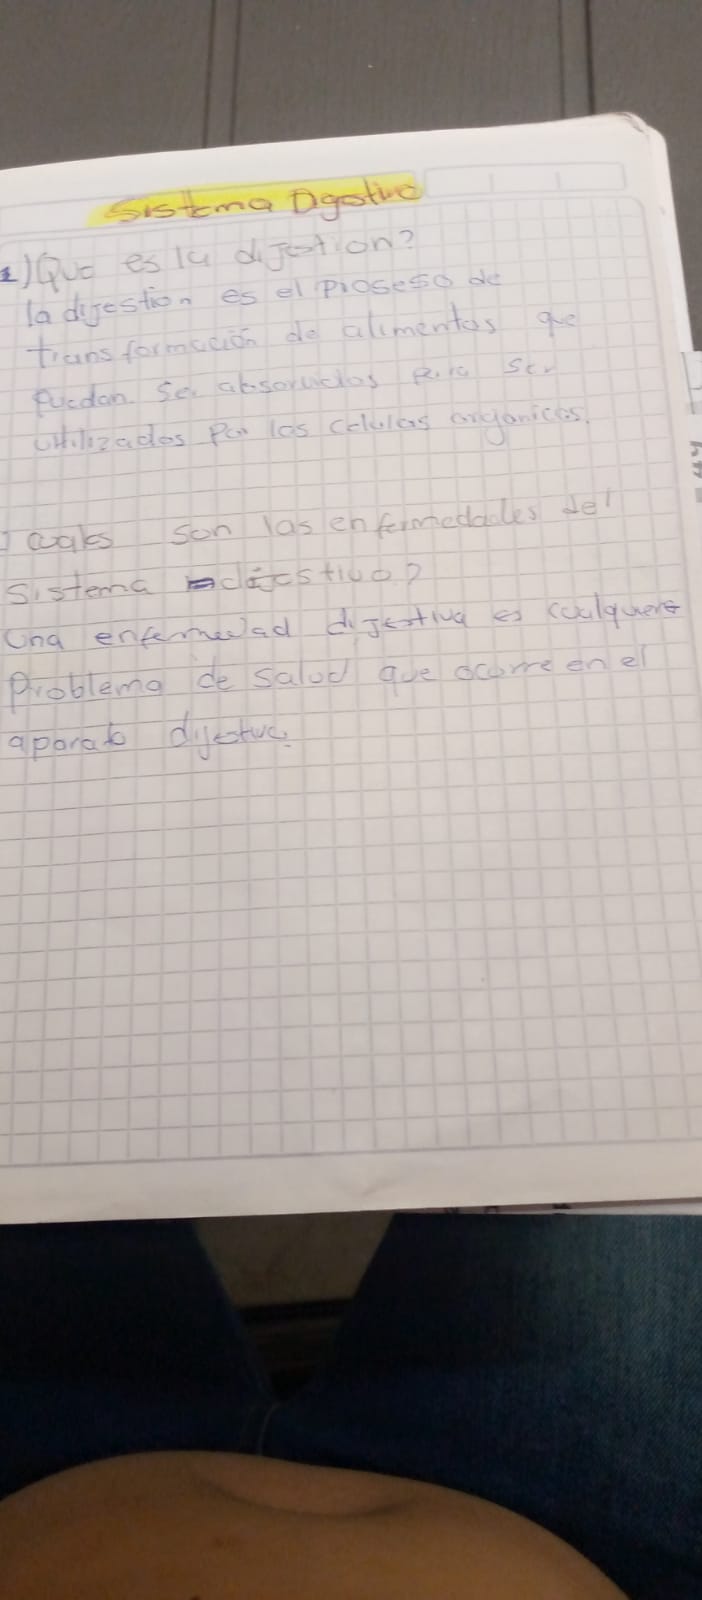 Sistema Dgestivo
1) Que es la dijestion?
la dijestion es el proseso de
transformación de alimentos que
puedan ser absorvidos para ser
utilizados por las celulas organicas.
cuales son las enfermedades del
Sistema digestivo?
Una enfermedad dijestiva es cualquiere
Problema de salud que ocurre en el
aparato dijestivo.